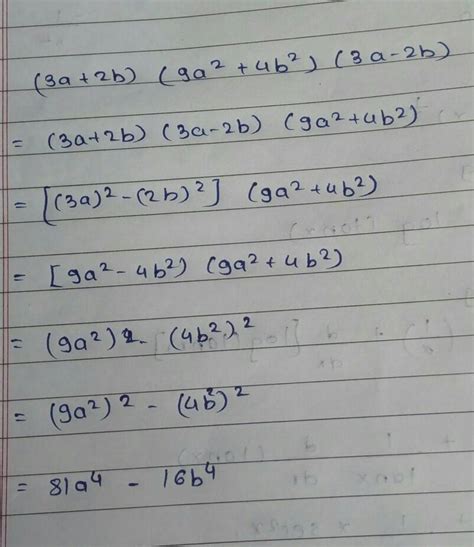 (3a+2b) (9a² + 4b²) (3a-2b)
= (3a+2b) (3a-2b) (9a²+4b²)
= [(3a)² - (2b)²] (9a²+4b²)
= [9a² - 4b²) (9a² + 4b²)
= (9a²)2 - (4b²)²
= (9a²)² - (4b²)²
= 81a⁴ - 16b⁴